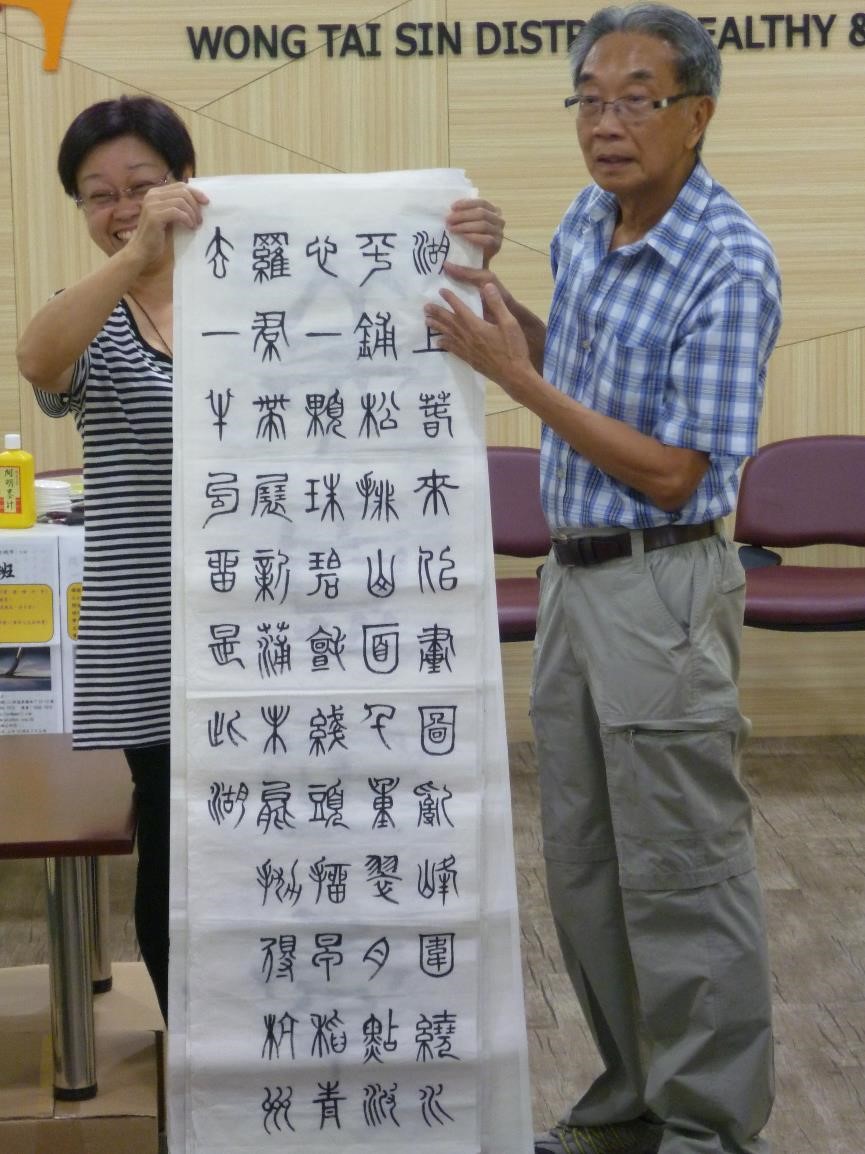 WONG TAI SIN DISTR EALTHY &
湖上春來似畫圖亂峰圍繞水
平鋪松排山面千重翠月點波
心一顆珠碧毯綫頭抽早稻青
羅帬帶展新蒲未能拋得杭州
去一半勾留是此湖
墨汁
班